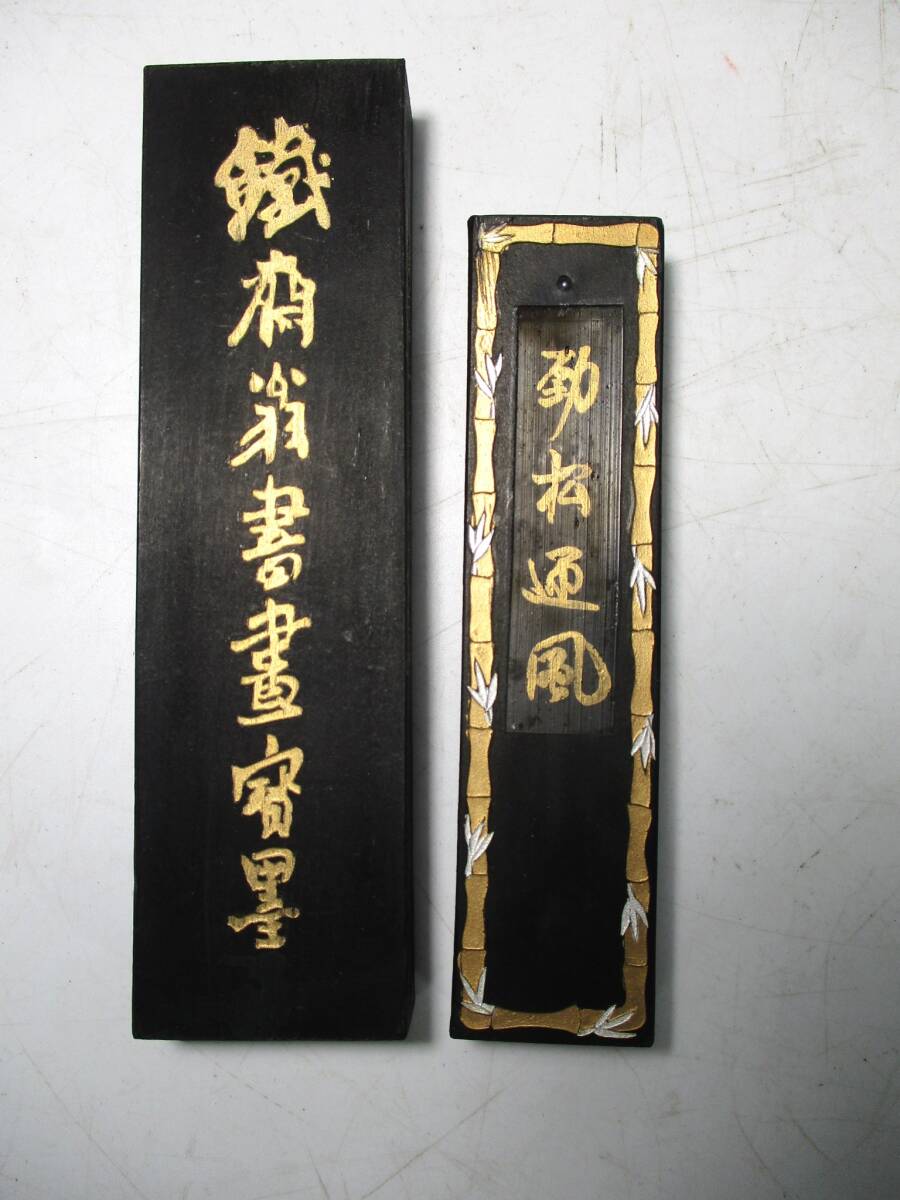 鐵齋翁書畫寶墨
勁松迎風